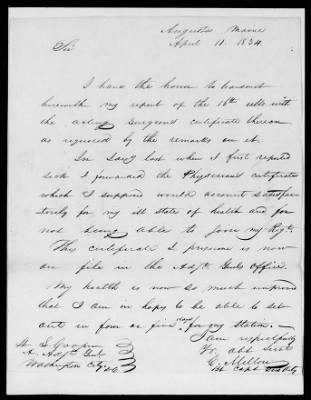 Augusta Maine
April 11. 1834
Sir
I have the honor to transmit
herewith my report of the 16th ulto. with
the acting Surgeons certificate thereon
as required by the remarks on it.
In Jany last when I first reported
sick I forwarded the Physicians certificate
which I supposed would account satisfac
torily for my ill state of health and for
not being able to join my Regt.
This certificate I presume is now
on file in the Adjt. Genls Office.
My health is now so much improved
that I am in hopes to be able to set
out in four or five days for my Station.
I am respectfully
Yr. obt Servt
C. Mellon
Bt Capt
Lt. S. Cooper
A. Adjt. Genl.
Washington City